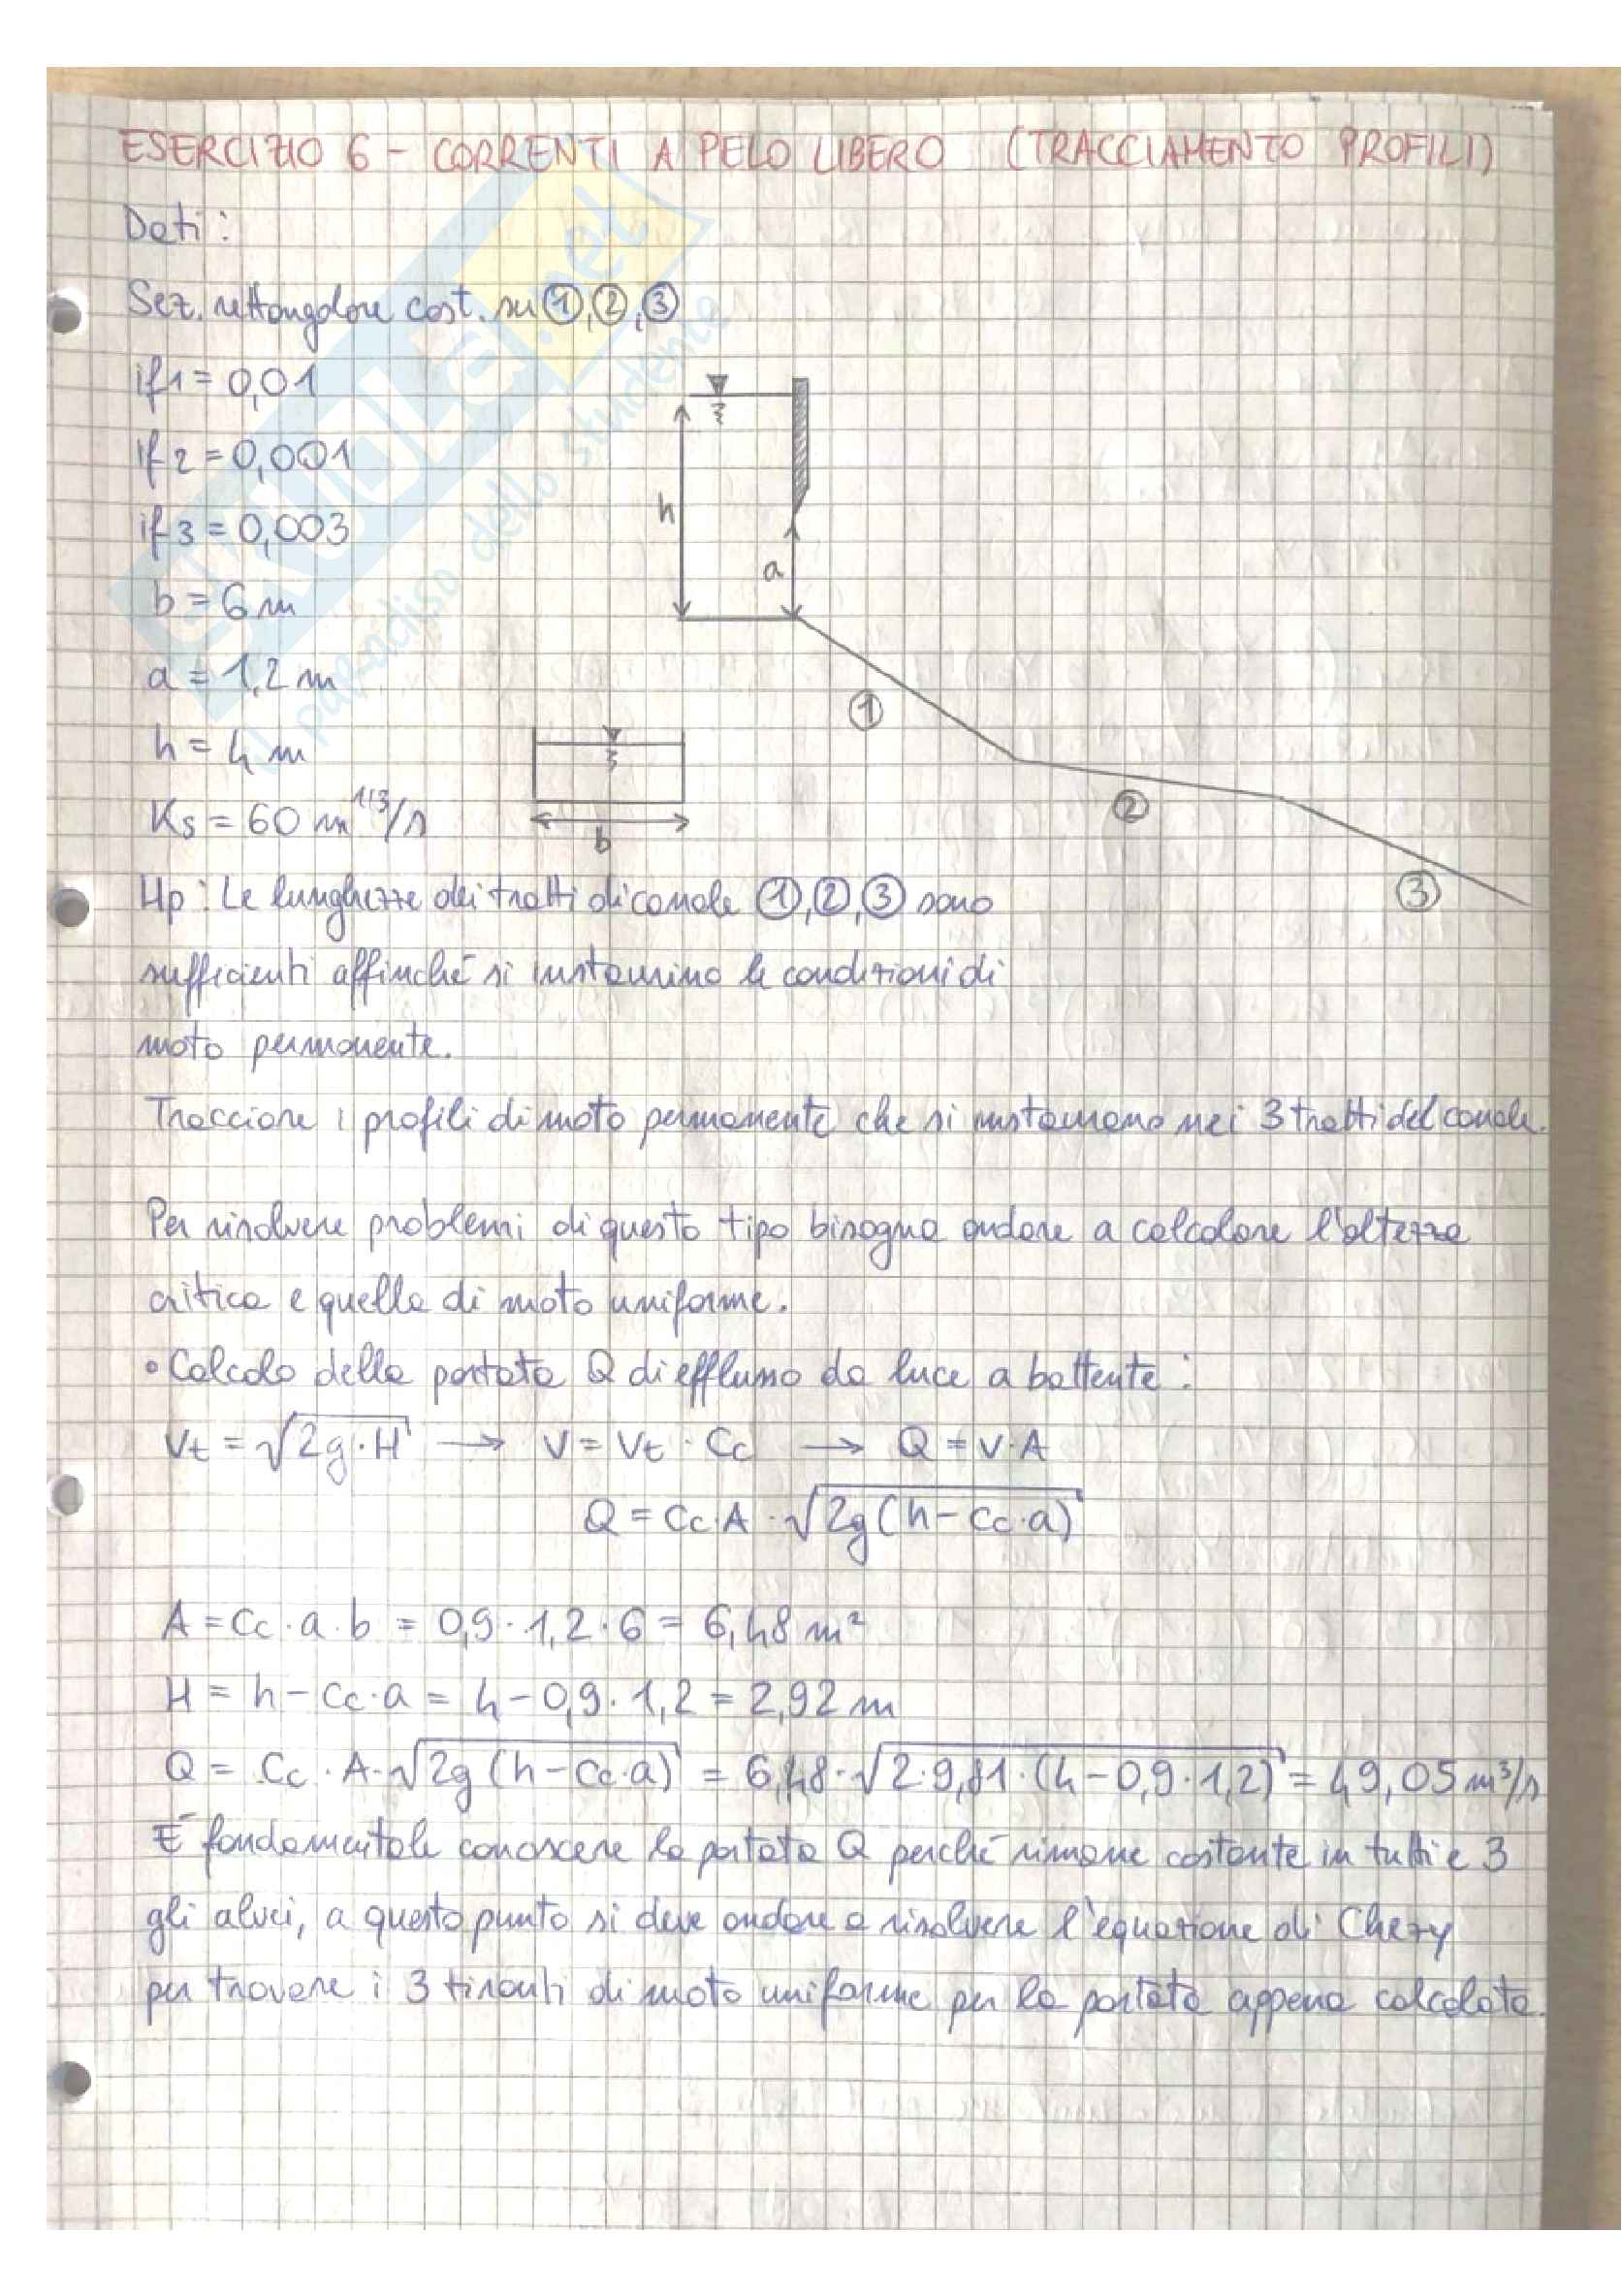 ESERCIZIO 6 - CORRENTI A PELO LIBERO (TRACCIAMENTO PROFILI)
Dati:
Sez. rettangolare cost. su ①,②,③
if1 = 0,01
if2 = 0,001
if3 = 0,003
b = 6 m
a = 1,2 m
h = 4 m
Ks = 60 m^1/3/s
h
a
①
②
③
b
Hp: Le lunghezze dei tratti di canale ①,②,③ sono
sufficienti affinché si instaurino le condizioni di
moto permanente.
Tracciare i profili di moto permanente che si instaurano nei 3 tratti del canale.
Per risolvere problemi di questo tipo bisogna andare a calcolare l'altezza
critica e quella di moto uniforme.
• Calcolo della portata Q di efflusso da luce a battente:
Vt = √2g·H → V = Vt · Cc → Q = V·A
Q = Cc·A·√2g(h-Cc·a)
A = Cc·a·b = 0,9·1,2·6 = 6,48 m²
H = h - Cc·a = 4 - 0,9·1,2 = 2,92 m
Q = Cc·A·√2g(h-Cc·a) = 6,48·√2·9,81·(4-0,9·1,2) = 49,05 m³/s
È fondamentale conoscere la portata Q perché rimane costante in tutti e 3
gli alvei, a questo punto si deve andare a risolvere l'equazione di Chezy
per trovare i 3 tiranti di moto uniforme per la portata appena calcolata.
SKUOLA.net
il paradiso dello studente